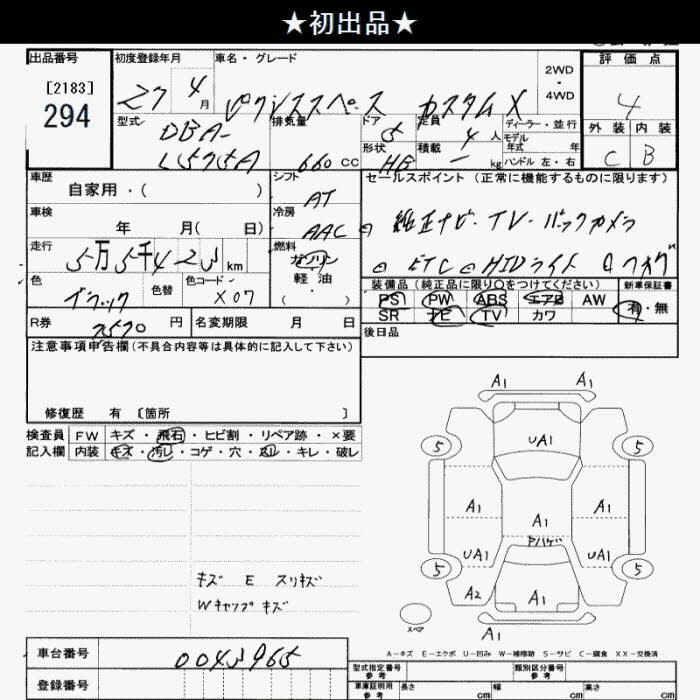 ★初出品★
出品番号
[2183]
294
初度登録年月
27 4月
車名・グレード
ピクシススペース カスタムX
2WD
・
4WD
評価点
4
外装 内装
C B
型式
DBA-
L575A
排気量
660 CC
ドア
5
形状
HB
定員
4人
積載
- kg
ディーラー・並行
モデル
年式 年
ハンドル 左・右
車歴
自家用・( )
シフト
AT
セールスポイント(正常に機能するものに限ります)
純正ナビ・TV・バックカメラ
ETC HIDライト
車検
年 月( 日)
冷房
AAC
走行
5万5千423km
燃料
ガソリン
軽油
( )
色
ブラック
色替
色コード
X07
装備品(純正品に限り○をつけてください)
PS PW ABS エアB AW
SR ナビ TV カワ
新車保証書
有・無
R券
7570円
名変期限 月 日
後日品
注意事項申告欄(不具合内容等は具体的に記入して下さい)
修復歴 有 〔箇所 〕
検査員
記入欄
FW キズ・飛石・ヒビ割・リペア跡・×要
内装 キズ・汚レ・コゲ・穴・スレ・キレ・破レ
キズ E スリキズ
Wキャップキズ
A1 A1
UA1
5 5
A1 A1 A1
アハゲ
UA1 UA1
5 5
A2 A1
A1
スペア
A-キズ E-エクボ U-凹み W-補修跡 S-サビ C-腐食 XX-交換済
車台番号
0043965
登録番号
型式指定番号
参考
類別区分番号
参考
車庫証明用
参考
長さ cm
幅 cm
高さ cm